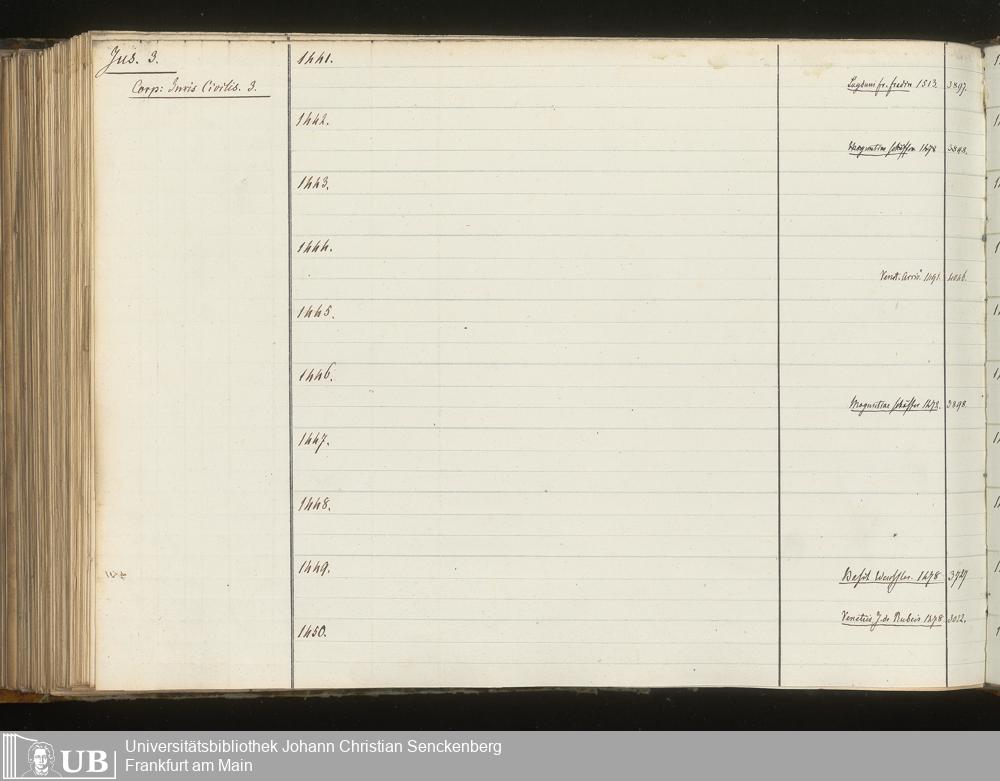 Jus. 3.
Corp: Juris Civilis. 3.
1441.
Lugduni fr. fradin 1513. 3897.
1442.
Moguntiae Schöffer 1478
1443.
1444.
Venet. 1491.
1445.
1446.
Moguntiae Schöffer 1472. 3898.
1447.
1448.
1449.
Basil. Wenssler. 1478
Venetiis J. de Rubeis 1478 3012.
1450.
UB
Universitätsbibliothek Johann Christian Senckenberg
Frankfurt am Main